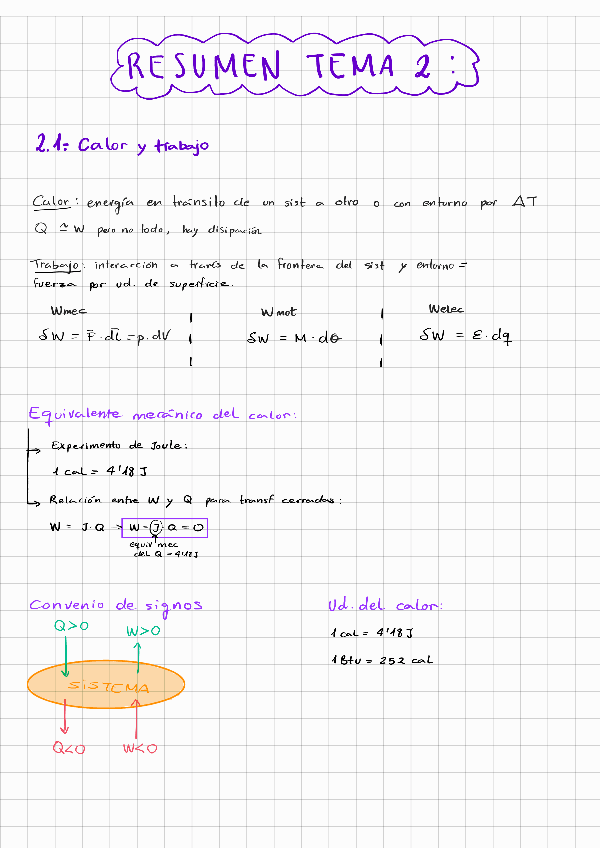 RESUMEN TEMA 2:
2.1: Calor y trabajo
Calor: energía en tránsito de un sist a otro o con entorno por ΔT
Q ≃ W pero no todo, hay disipación
Trabajo: interacción a través de la frontera del sist y entorno =
fuerza por ud. de superficie.
Wmec Wmot Welec
δW = F̄·dL̄ = p·dV δW = M·dθ δW = ε·dq
Equivalente mecánico del calor:
Experimento de Joule:
1 cal = 4'18 J
Relación entre W y Q para transf cerradas:
W = J·Q → W - J·Q = 0
equiv mec
del Q = 4'18J
Convenio de signos
Q>0 W>0
SISTEMA
Q<0 W<0
Ud. del calor:
1 cal = 4'18 J
1 Btu = 252 cal